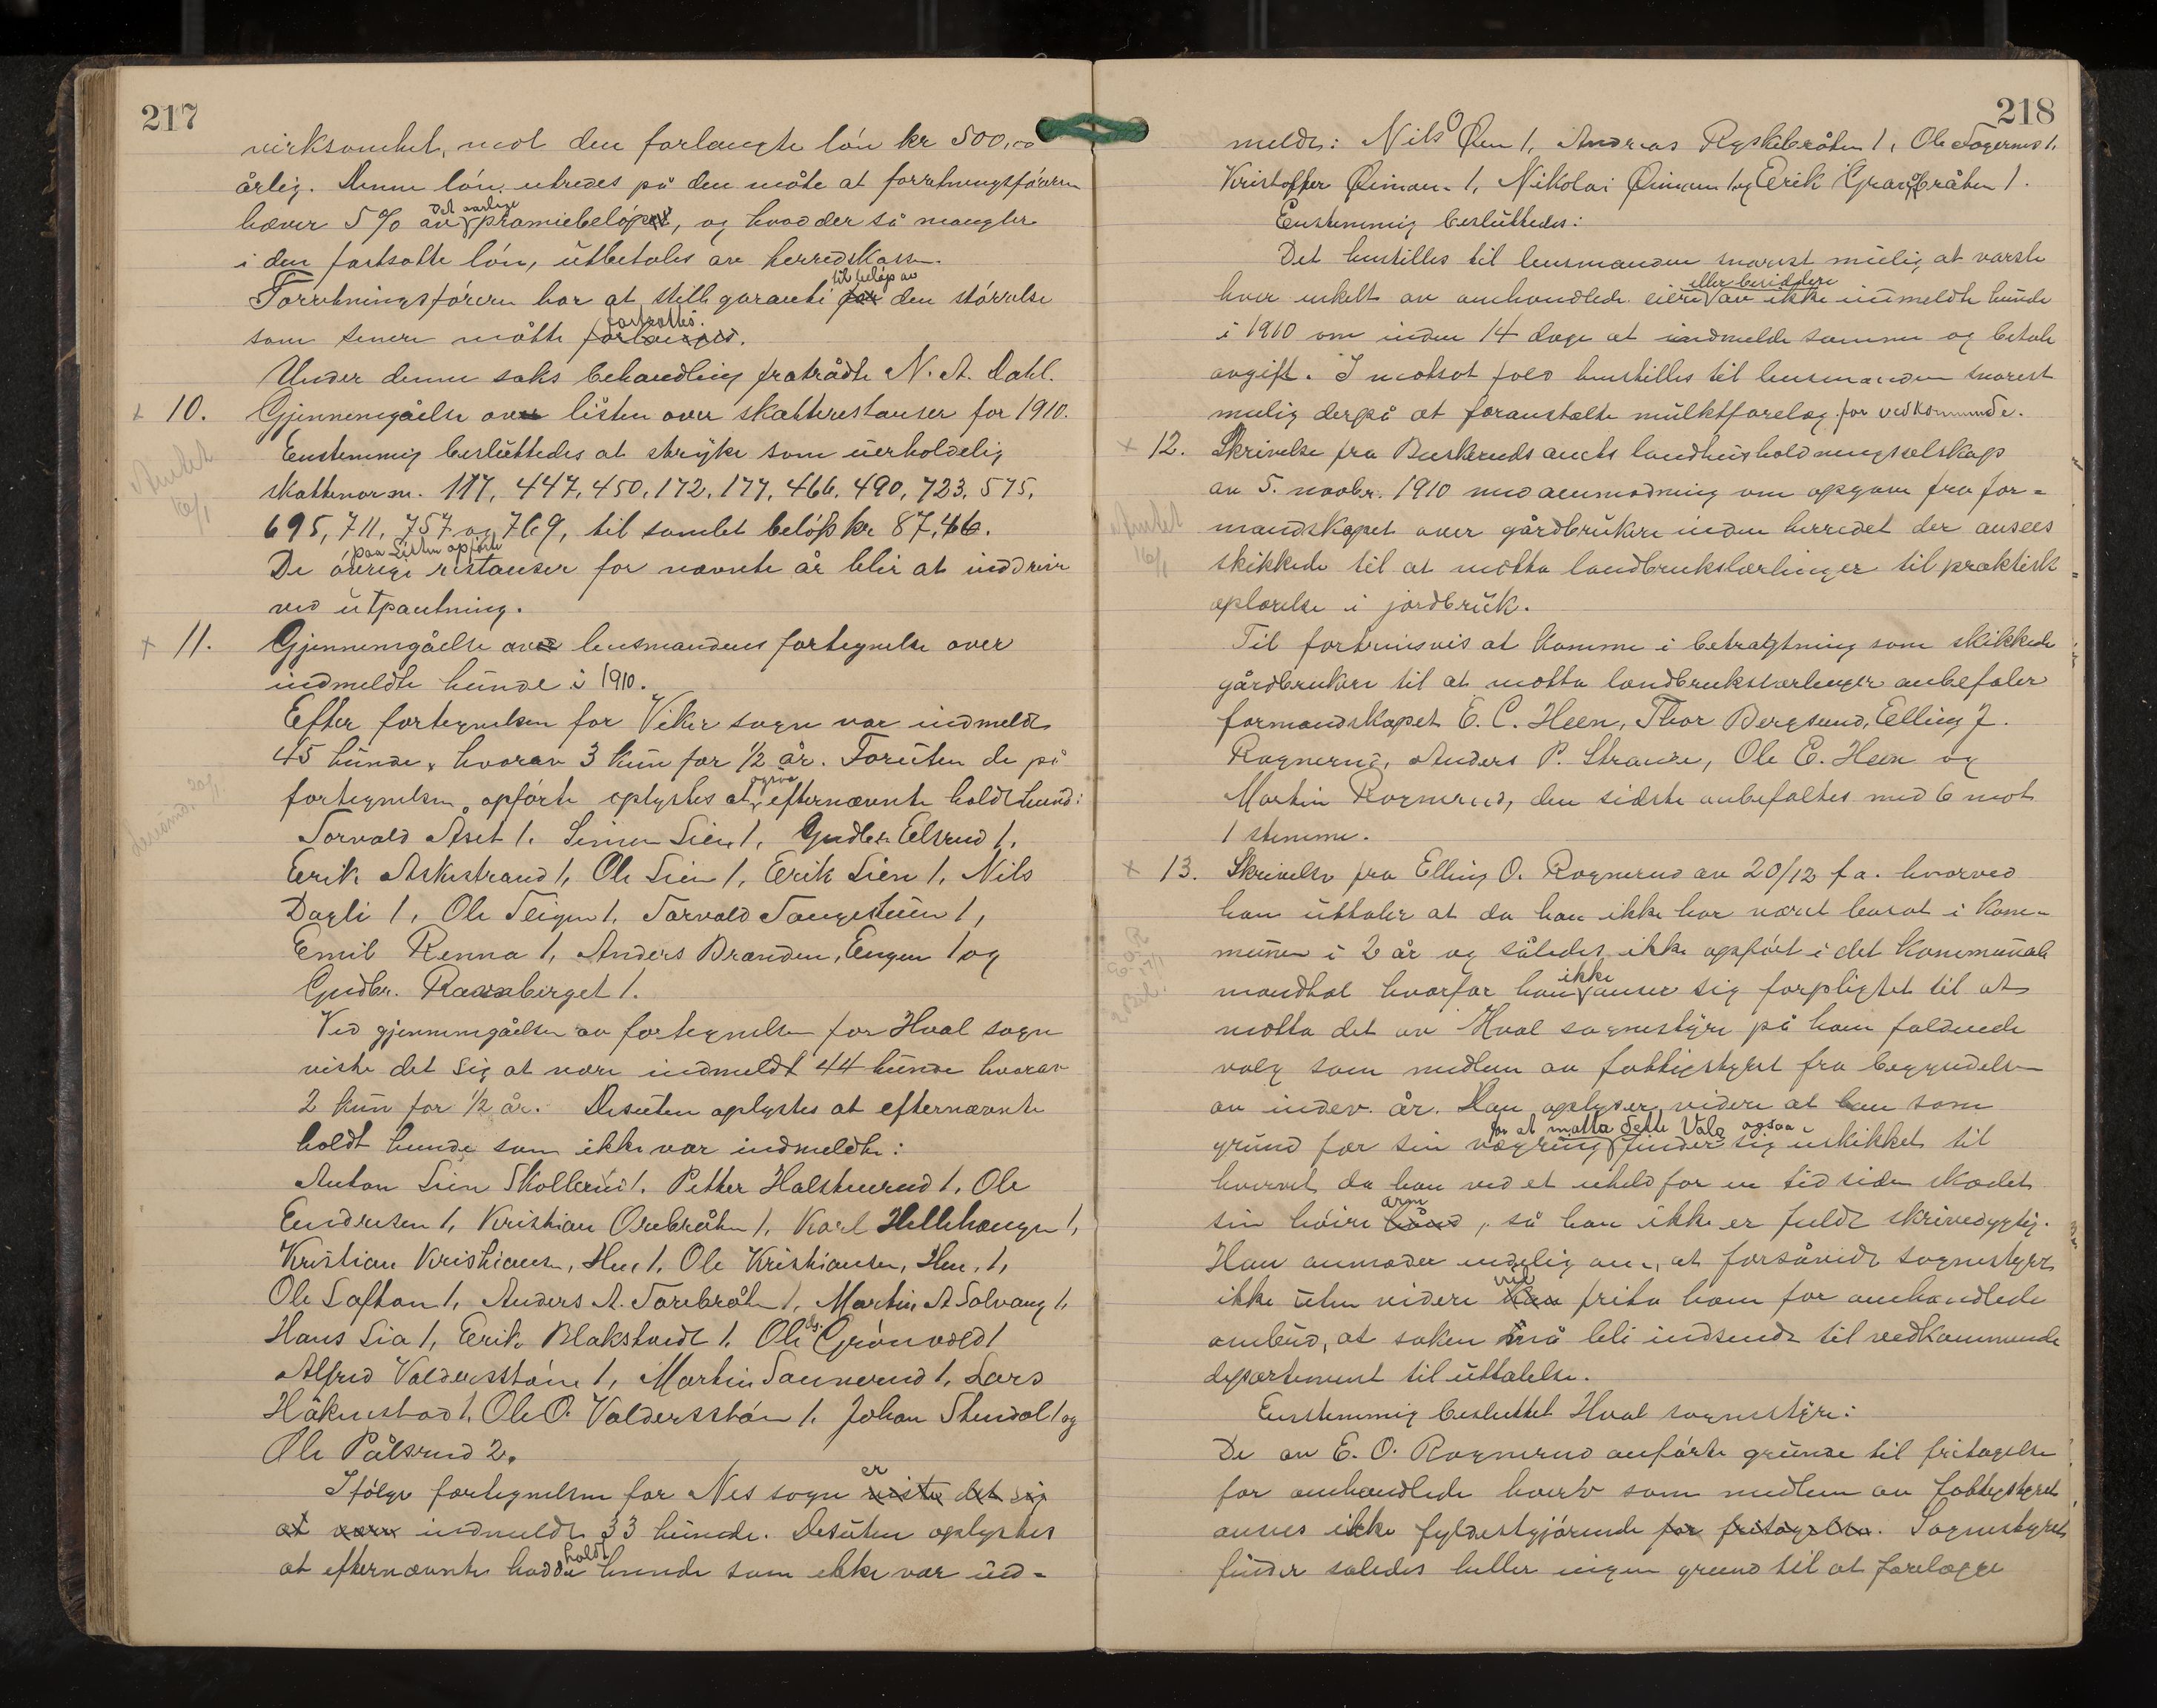 217
virksomhet, mot den forlangte løn kr 500,00
årlig. Denne løn utredes på den måte at forretningsføreren
hæver 5 % av det aarlige præmiebeløp, og hvad der så mangler
i den fastsatte løn, utbetales av herredskassen.
Forretningsføreren har at stille garanti for til beløp av den størrelse
som senere måtte forlanges. fastsættes.
Under denne saks behandling fratrådte N. A. Dahl.
x 10. Gjennemgåelse over listen over skatterestanser for 1910.
Enstemmig besluttedes at stryke som uerholdelig
skattenorm. 117, 447, 450, 172, 177, 466, 490, 723, 575,
695, 711, 757 og 769, til samlet beløp kr 87,46.
De øvrige paa Listen opførte restanser for nævnte år blir at inddrive
ved utpantning.
x 11. Gjennemgåelse over lensmandens fortegnelse over
indmeldte hunde i 1910.
Efter fortegnelsen for Viker sogn var indmeldt
45 hunde, hvorav 3 kun for 1/2 år. Foruten de på
fortegnelsen opførte oplystes at ogsaa efternævnte holdt hund:
Torvald Åset 1. Simen Lien 1, Gudbr. Elsrud 1,
Erik Askestrand 1, Ole Lien 1, Erik Lien 1, Nils
Dagli 1, Ole Teigen 1, Torvald Tangestuen 1,
Emil Renna 1, Anders Branden, Engen 1 og
Gudbr. Ravnberget 1.
Ved gjennemgåelsen av fortegnelsen for Hval sogn
viste det sig at være indmeldt 44 hunde hvorav
2 kun for 1/2 år. Desuten oplystes at efternævnte
holdt hunde som ikke var indmeldte:
Anton Lien Skollerud 1. Petter Halstenrud 1. Ole
Endresen 1, Kristian Orebråten 1, Karl Hellehaugen 1,
Kristian Kristiansen, Hen 1. Ole Kristiansen, Hen, 1,
Ole Loftan 1, Anders A. Torebråten 1, Martin A Solvang 1,
Hans Lia 1, Erik Blakstvedt 1. Ole Grønvold 1
Alfred Valdersstøen 1, Martin Sannerud 1, Lars
Håkenstad 1, Ole O. Valdersstøen 1. Johan Stendal 1 og
Ole Pålsrud 2.
Ifølge fortegnelsen for Nes sogn er viste det sig
at være indmeldt 33 hunde. Desuten oplystes
at efternævnte hadde holdt hunde som ikke var ind-
218
meldt: Nils O Øen 1, Andreas Ryskebråten 1, Ole Fagernes 1,
Kristoffer Øiman 1, Nikolai Øiman 1 og Erik Granbråten 1.
Enstemmig besluttedes:
Det henstilles til lensmanden snarest mulig at varsle
hver enkelt av omhandlede eiere eller besiddere av ikke indmeldte hunde
i 1910 om inden 14 dage at indmelde samme og betale
avgift. I motsat fald henstilles til lensmanden snarest
mulig derpå at foranstalte mulktforelæg for vedkommende.
x 12. Skrivelse fra Buskeruds amts landhusholdningsselskap
av 5. novbr. 1910 med anmodning om opgave fra for-
mandskapet over gårdbrukere inden herredet der ansees
skikkede til at motta landbrukslærlinger til praktisk
oplærelse i jordbruk.
Til fortrinsvis at komme i betragtning som skikkede
gårdbrukere til at motta landbrukslærlinger anbefaler
formandskapet E. C. Heen, Thor Bergsund, Elling J.
Rognerud, Anders P. Strande, Ole E. Heen og
Martin Rognerud, den sidste anbefaltes med 6 mot
1 stemme.
x 13. Skrivelse fra Elling O. Rognerud av 20/12 f.a. hvorved
han uttaler at da han ikke har været bosat i kom-
munen i 2 år og således ikke opført i det kommunale
mandtal hvorfor han ikke anser sig forpligtet til at
motta det av Hval sognestyre på ham faldende
valg som medlem av fattigstyret fra begyndelsen
av indev. år. Han oplyser videre at han som
grund for sin vægring for at motta dette Valg finder sig ogsaa uskikket til
hvervet da han ved et uheld for en tid siden skadet
sin høire hånd arm, så han ikke er fuldt skrivedygtig.
Han anmoder endelig om, at forsåvidt sognestyret
ikke uten videre kan vil frita ham for omhandlede
ombud, at saken må bli indsendt til vedkommende
departement til uttalelse.
Enstemmig besluttet Hval sognestyre:
De av E. O. Rognerud anførte grunde til fritagelse
for omhandlede hverv som medlem av fattigstyret
ansees ikke fyldestgjørende for fritagelse. Sognestyret
finder således heller ingen grund til at forelægge